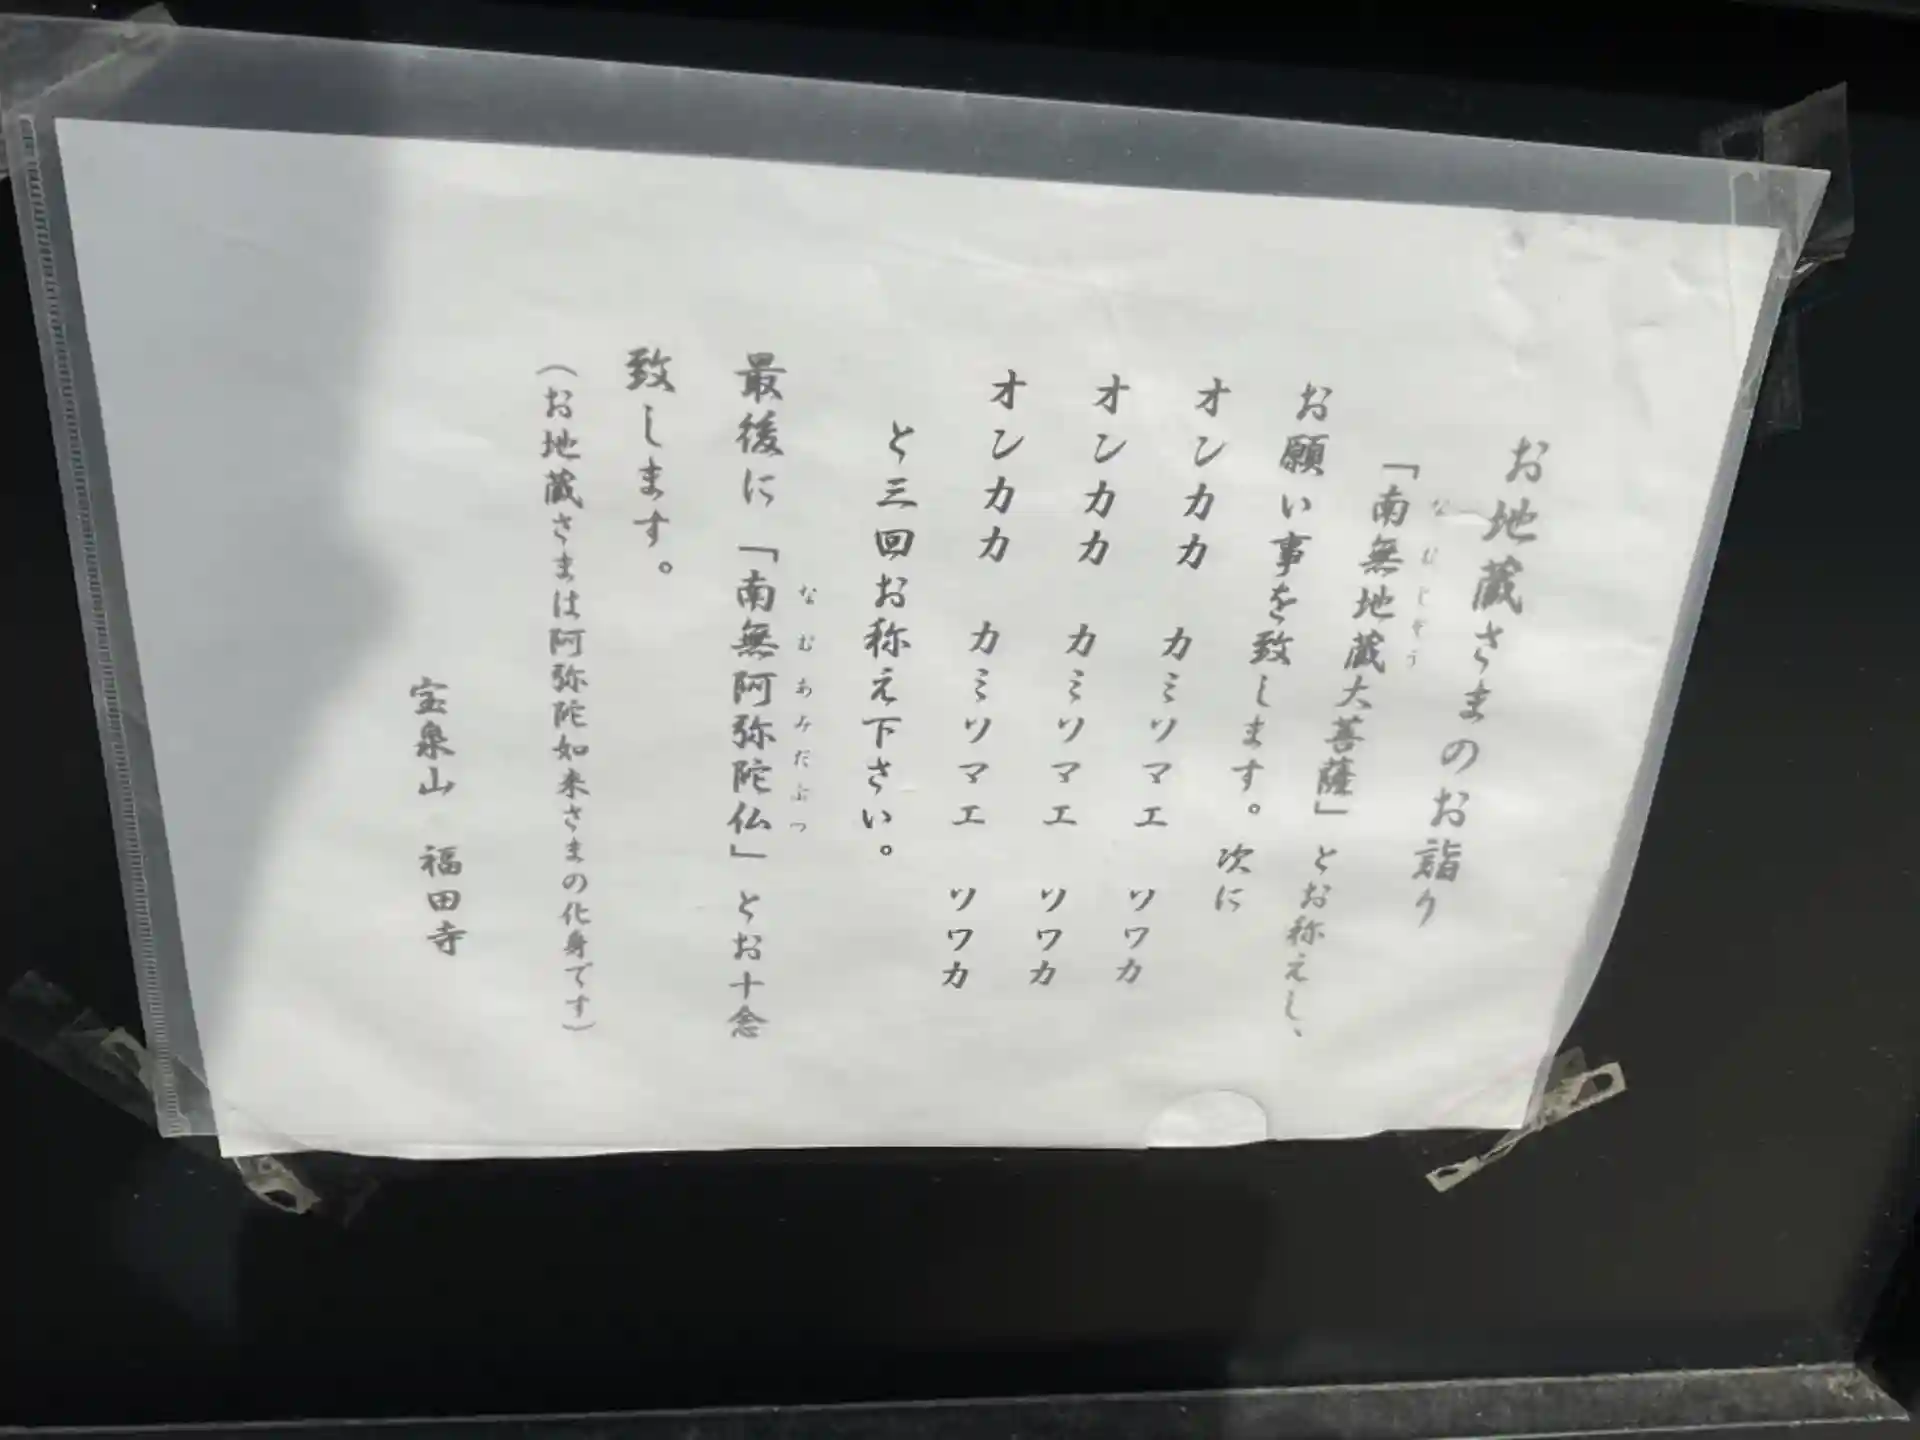 お地蔵さまのお詣り
「南無地蔵大菩薩」とお称えし、
なむじぞう
お願い事を致します。次に
オンカカ カミソマエ ソワカ
オンカカ カミソマエ ソワカ
オンカカ カミソマエ ソワカ
と三回お称え下さい。
最後に「南無阿弥陀仏」とお十念
なむあみだぶつ
致します。
(お地蔵さまは阿弥陀如来さまの化身です)
宝泉山 福田寺